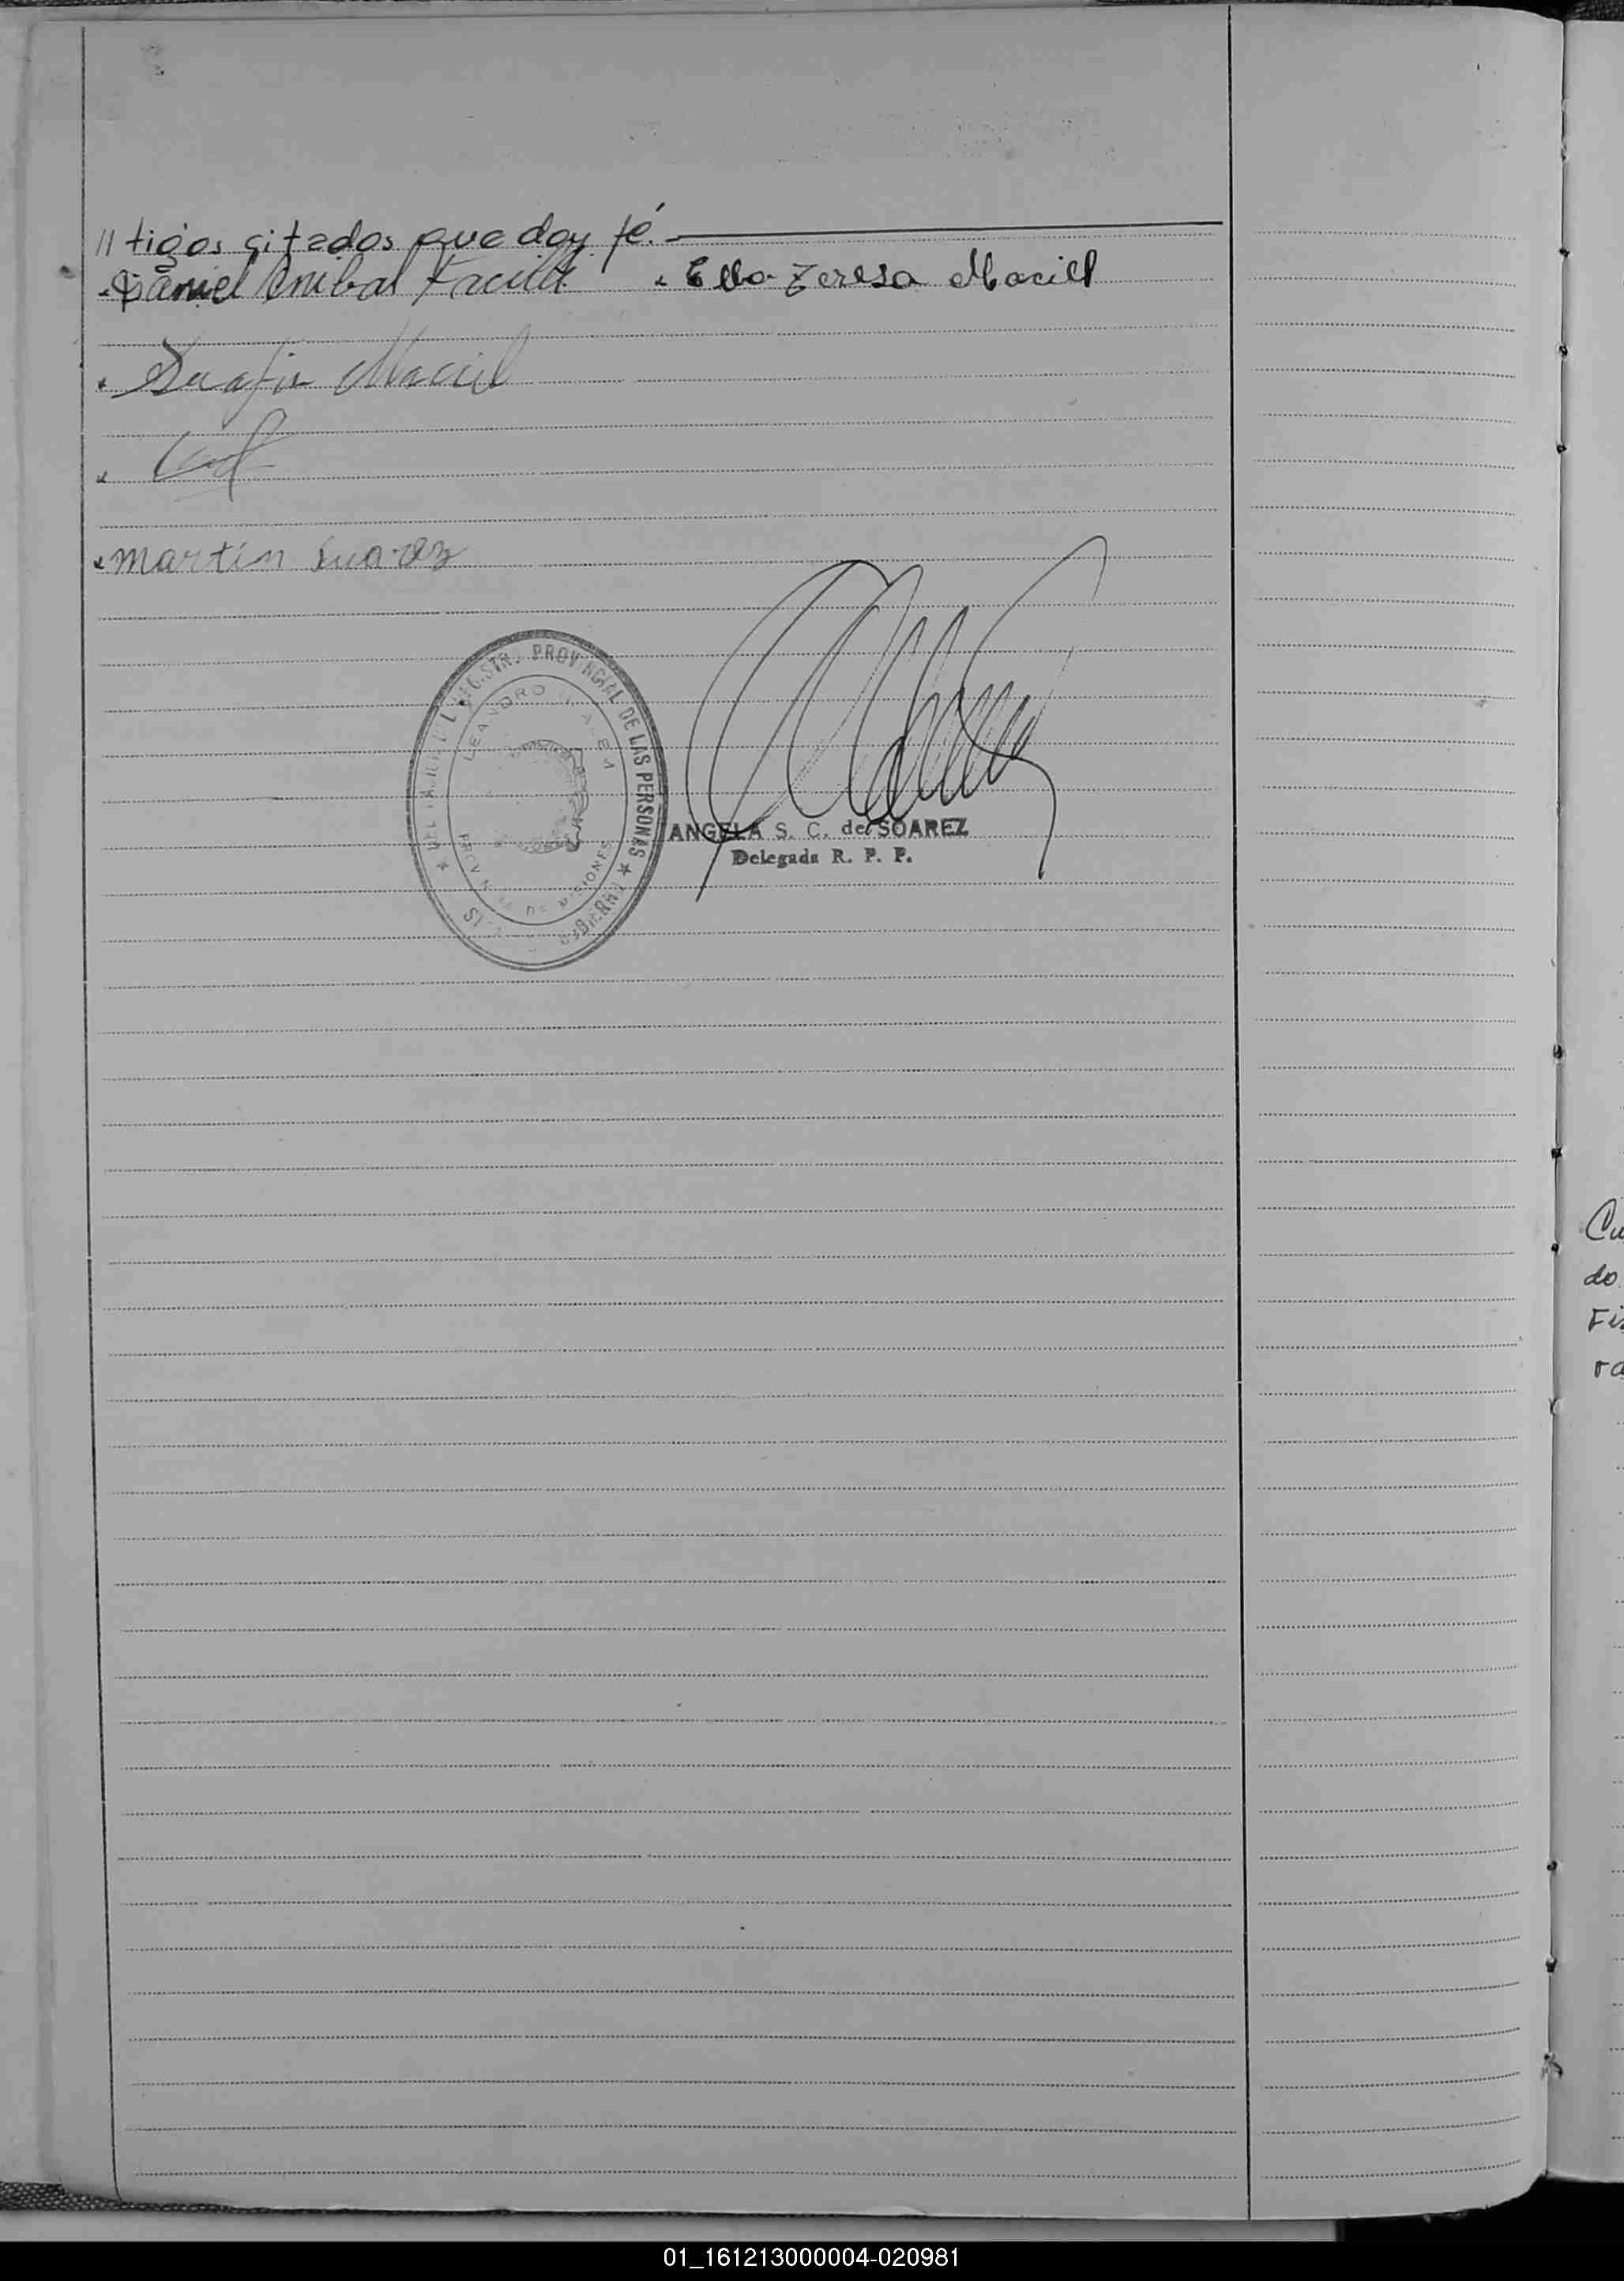 // tigos citados que doy fé.-
Daniel Anibal          Ella Teresa Maciel
Maciel
martin Suarez
REGISTRO PROVINCIAL DE LAS PERSONAS
LEANDRO N. ALEM
PROVINCIA DE MISIONES
ANGELA S. C. de SOAREZ
Delegada R. P. P.
Cu
do
Fis
ra
01_161213000004-020981